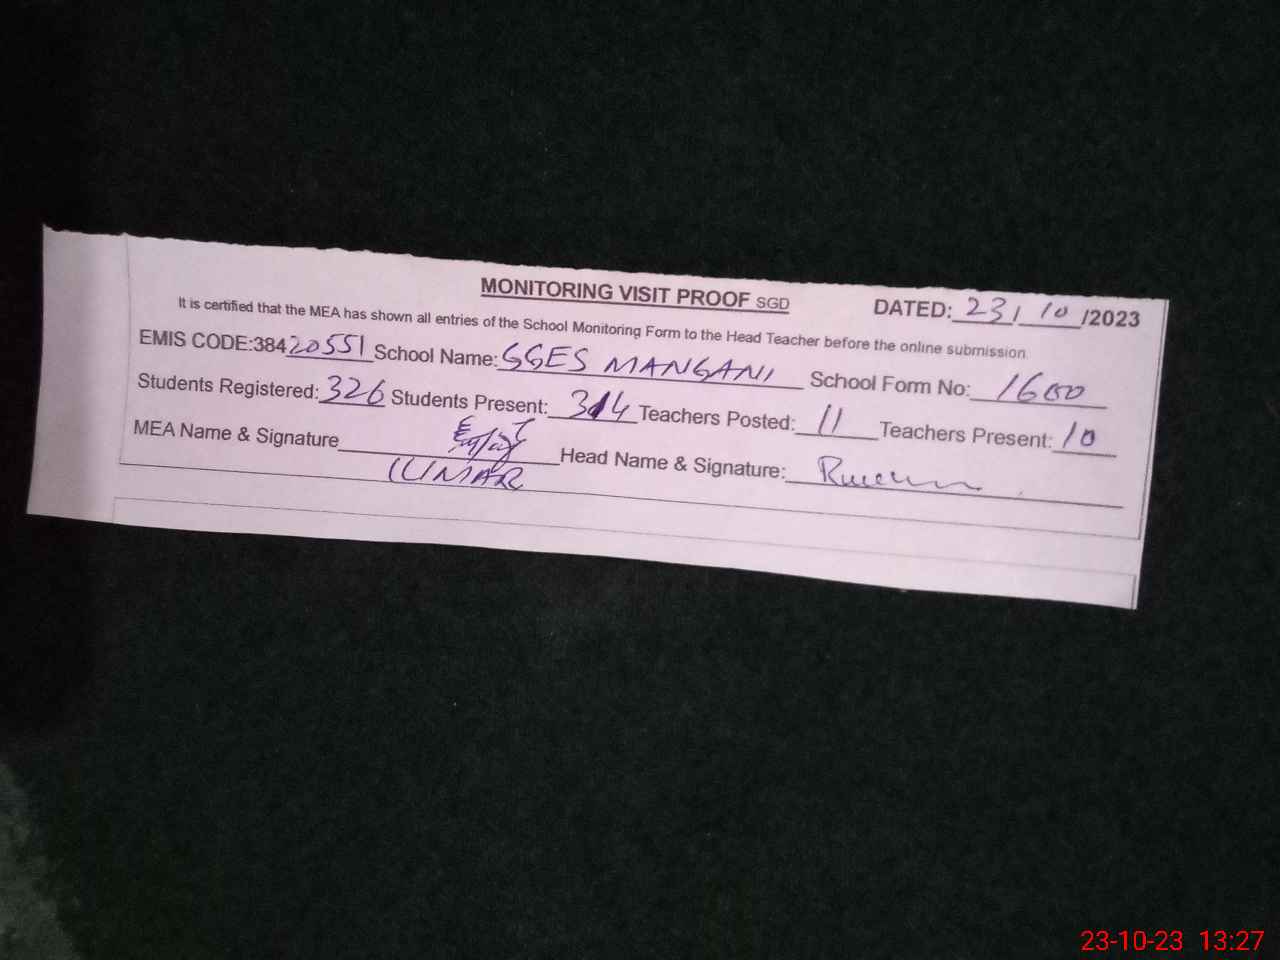 MONITORING VISIT PROOF SGD
DATED: 23/10/2023
It is certified that the MEA has shown all entries of the School Monitoring Form to the Head Teacher before the online submission.
EMIS CODE:38420551 School Name: GGES MANGANI School Form No: 1600
Students Registered: 326 Students Present: 314 Teachers Posted: 11 Teachers Present: 10
MEA Name & Signature Head Name & Signature:
UMAR
23-10-23 13:27